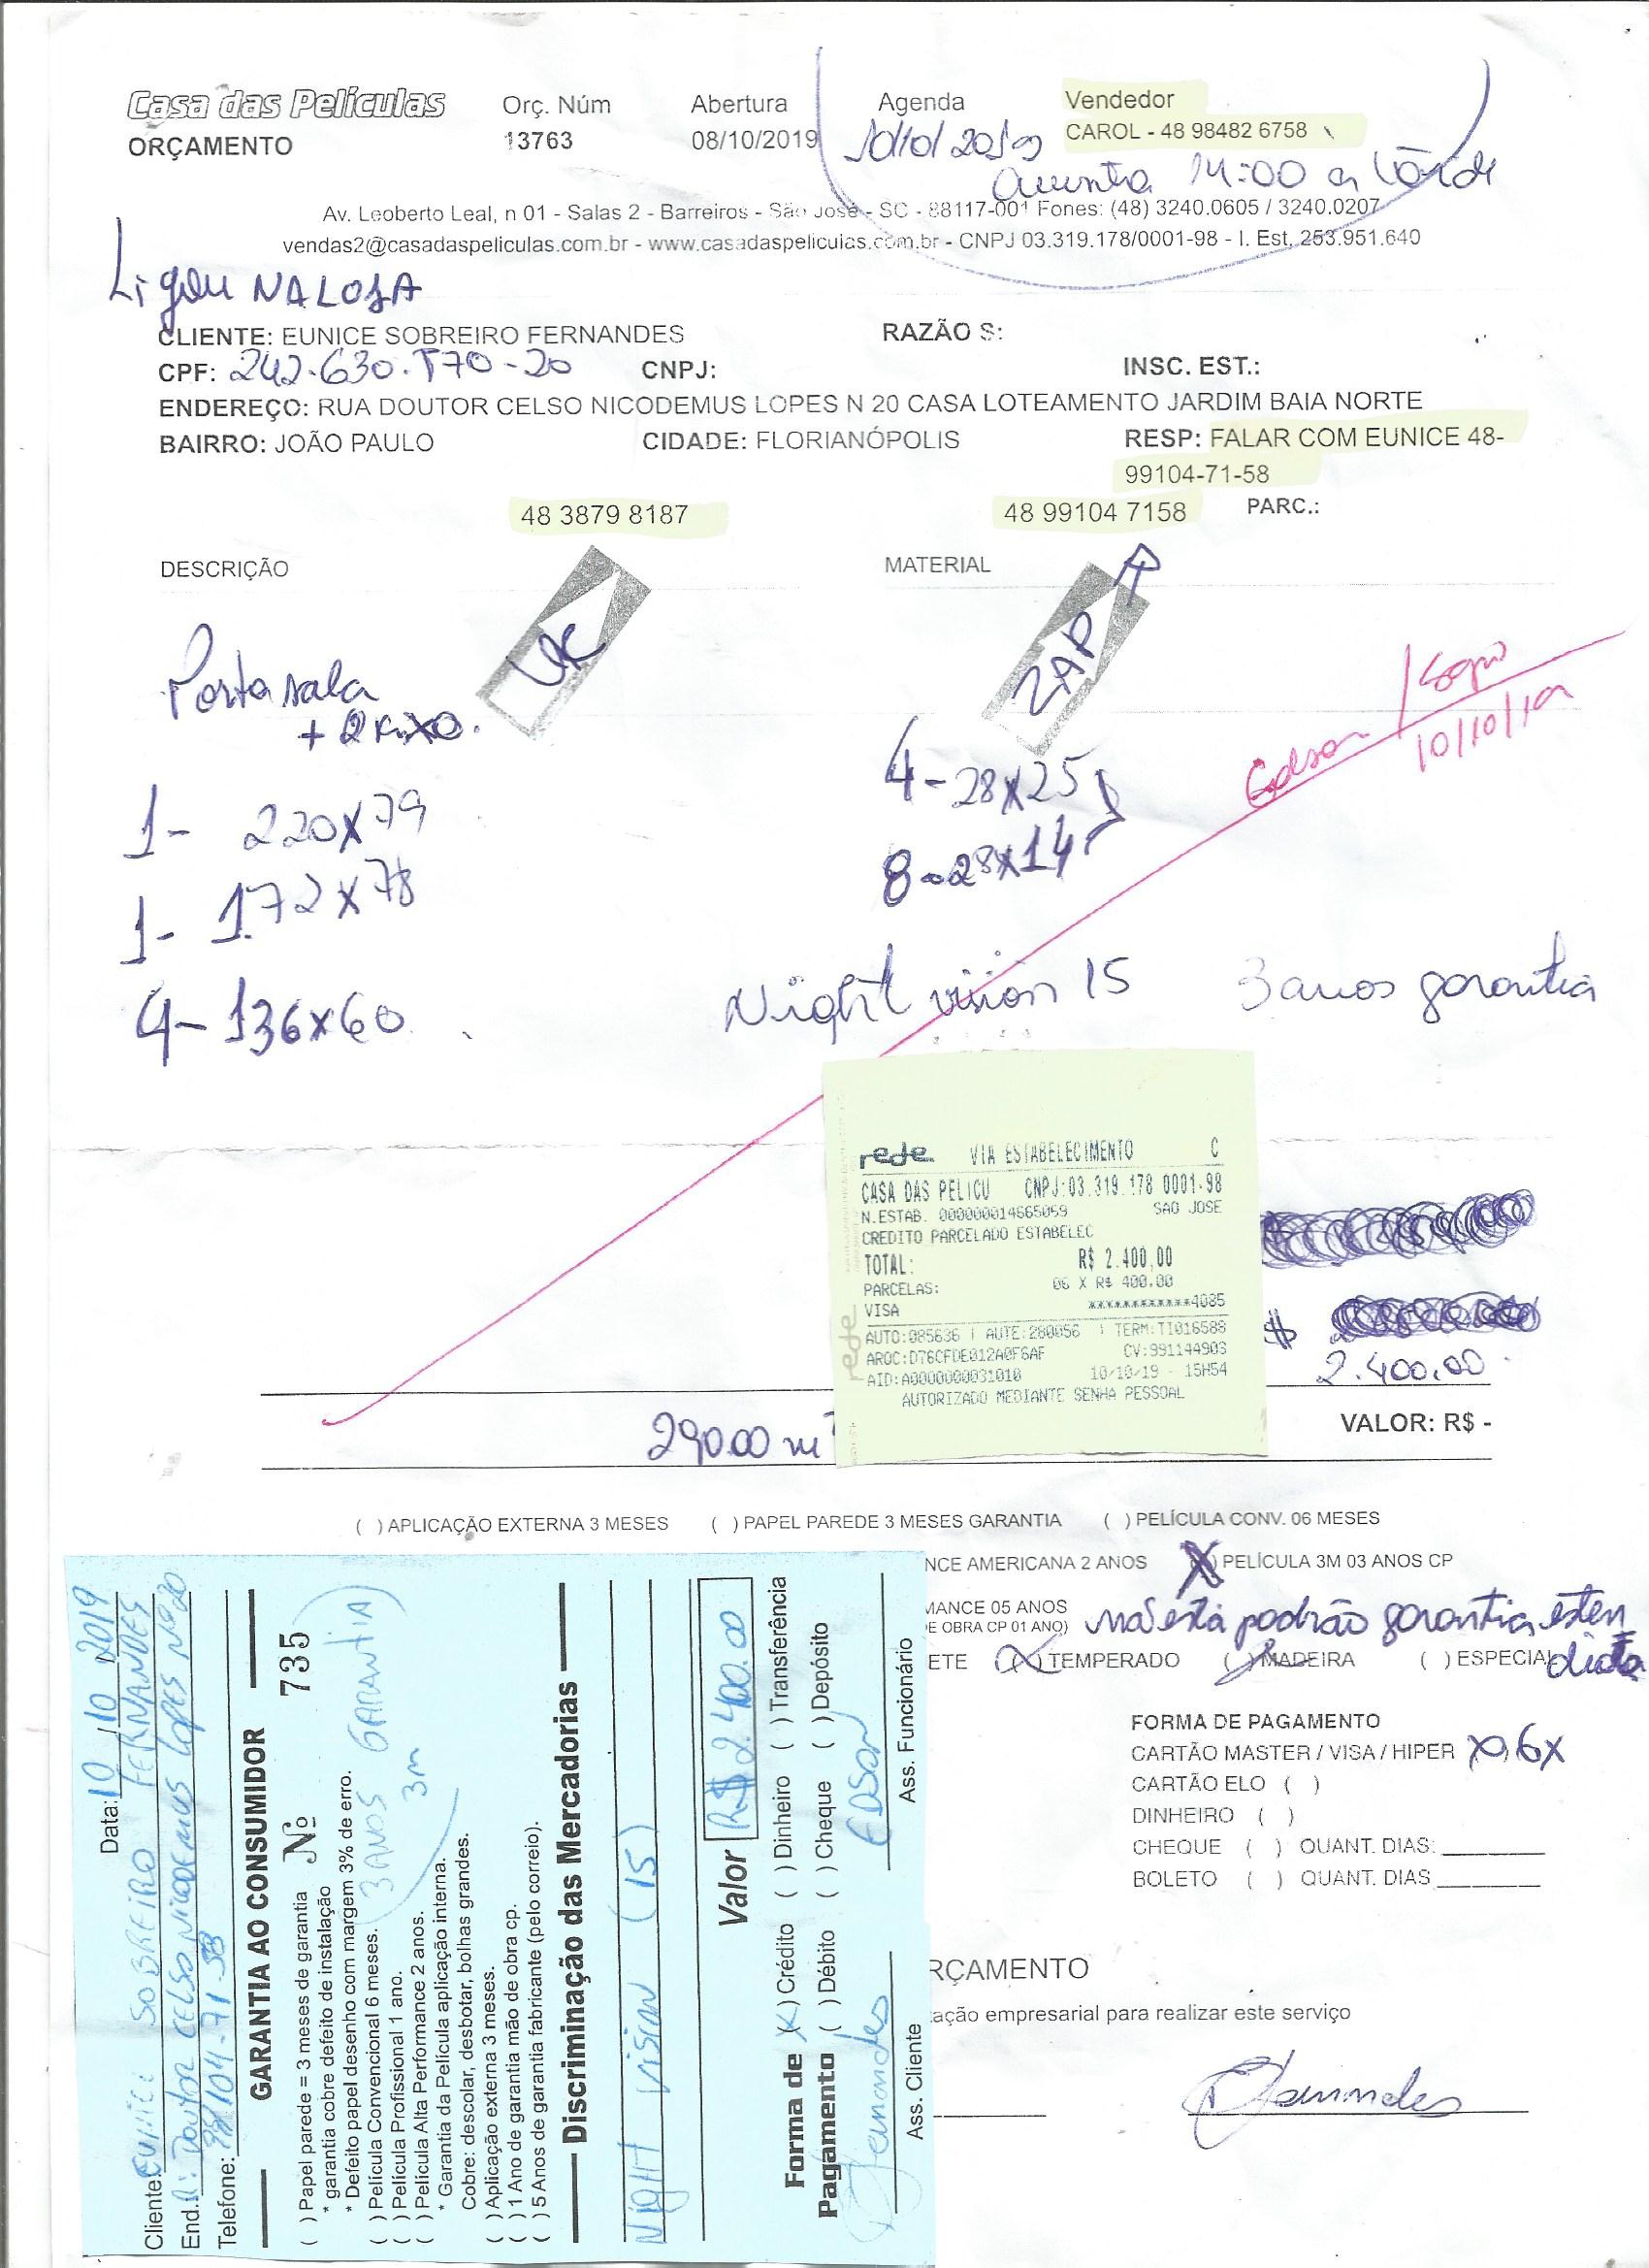 Casa das Películas
ORÇAMENTO
Orç. Núm
13763
Abertura
08/10/2019
Agenda
10/10/2019
Vendedor
CAROL - 48 98482 6758
14:00 a tarde
Av. Leoberto Leal, n 01 - Salas 2 - Barreiros - São José - SC - 88117-001 Fones: (48) 3240.0605 / 3240.0207
vendas2@casadaspeliculas.com.br - www.casadaspeliculas.com.br - CNPJ 03.319.178/0001-98 - I. Est, 253.951.640
Ligou NA LOJA
CLIENTE: EUNICE SOBREIRO FERNANDES RAZÃO S:
CPF: 242.630.570-20 CNPJ: INSC. EST.:
ENDEREÇO: RUA DOUTOR CELSO NICODEMUS LOPES N 20 CASA LOTEAMENTO JARDIM BAIA NORTE
BAIRRO: JOÃO PAULO CIDADE: FLORIANÓPOLIS RESP: FALAR COM EUNICE 48-
99104-71-58
48 3879 8187 48 99104 7158 PARC.:
DESCRIÇÃO MATERIAL
ZAP
Porta sala
+ 2 Fixo.
1- 220x79
1- 1.72x78
4- 136x60
4- 28x25
8- 28x14
Edson
10/10/19
Night vision 15 3 anos garantia
rede VIA ESTABELECIMENTO C
CASA DAS PELICU CNPJ:03.319.178 0001-98
N.ESTAB. 000000014665059 SAO JOSE
CREDITO PARCELADO ESTABELEC
TOTAL: R$ 2.400,00
PARCELAS: 06 X R$ 400,00
VISA ************4085
AUTO:085636 | AUTE:280056 | TERM:TI016588
ARQC:D76CFDE012A0F6AF CV:991144903
AID:A0000000031010 10/10/19 - 15H54
AUTORIZADO MEDIANTE SENHA PESSOAL
rede
$
2.400,00
290.00 m
VALOR: R$ -
( ) APLICAÇÃO EXTERNA 3 MESES ( ) PAPEL PAREDE 3 MESES GARANTIA ( ) PELÍCULA CONV. 06 MESES
NCE AMERICANA 2 ANOS (X) PELÍCULA 3M 03 ANOS CP
MANCE 05 ANOS
E OBRA CP 01 ANO)
padrão garantia esten
dida
ETE (X) TEMPERADO ( ) MADEIRA ( ) ESPECIAL
FORMA DE PAGAMENTO
CARTÃO MASTER / VISA / HIPER (X) 6x
CARTÃO ELO ( )
DINHEIRO ( )
CHEQUE ( ) QUANT. DIAS:
BOLETO ( ) QUANT. DIAS
RÇAMENTO
ação empresarial para realizar este serviço
Fernandes
Data: 10/10/2019
Cliente: EUNICE SOBREIRO FERNANDES
End.: R: Doutor CELSO Nicodemus Lopes Nº 20
Telefone: 99104-71-58
GARANTIA AO CONSUMIDOR
Nº 735
( ) Papel parede = 3 meses de garantia
* garantia cobre defeito de instalação
* Defeito papel desenho com margem 3% de erro.
( ) Película Convencional 6 meses.
( ) Película Profissional 1 ano.
( ) Película Alta Performance 2 anos.
* Garantia da Película aplicação interna.
Cobre: descolar, desbotar, bolhas grandes.
( ) Aplicação externa 3 meses.
( ) 1 Ano de garantia mão de obra cp.
( ) 5 Anos de garantia fabricante (pelo correio).
3 ANOS GARANTIA
3m
Discriminação das Mercadorias
NIGHT VISION (15)
Valor R$ 2.400.00
Forma de Pagamento
(X) Crédito ( ) Dinheiro ( ) Transferência
( ) Débito ( ) Cheque ( ) Depósito
Fernandes
Ass. Cliente
EDSON
Ass. Funcionário